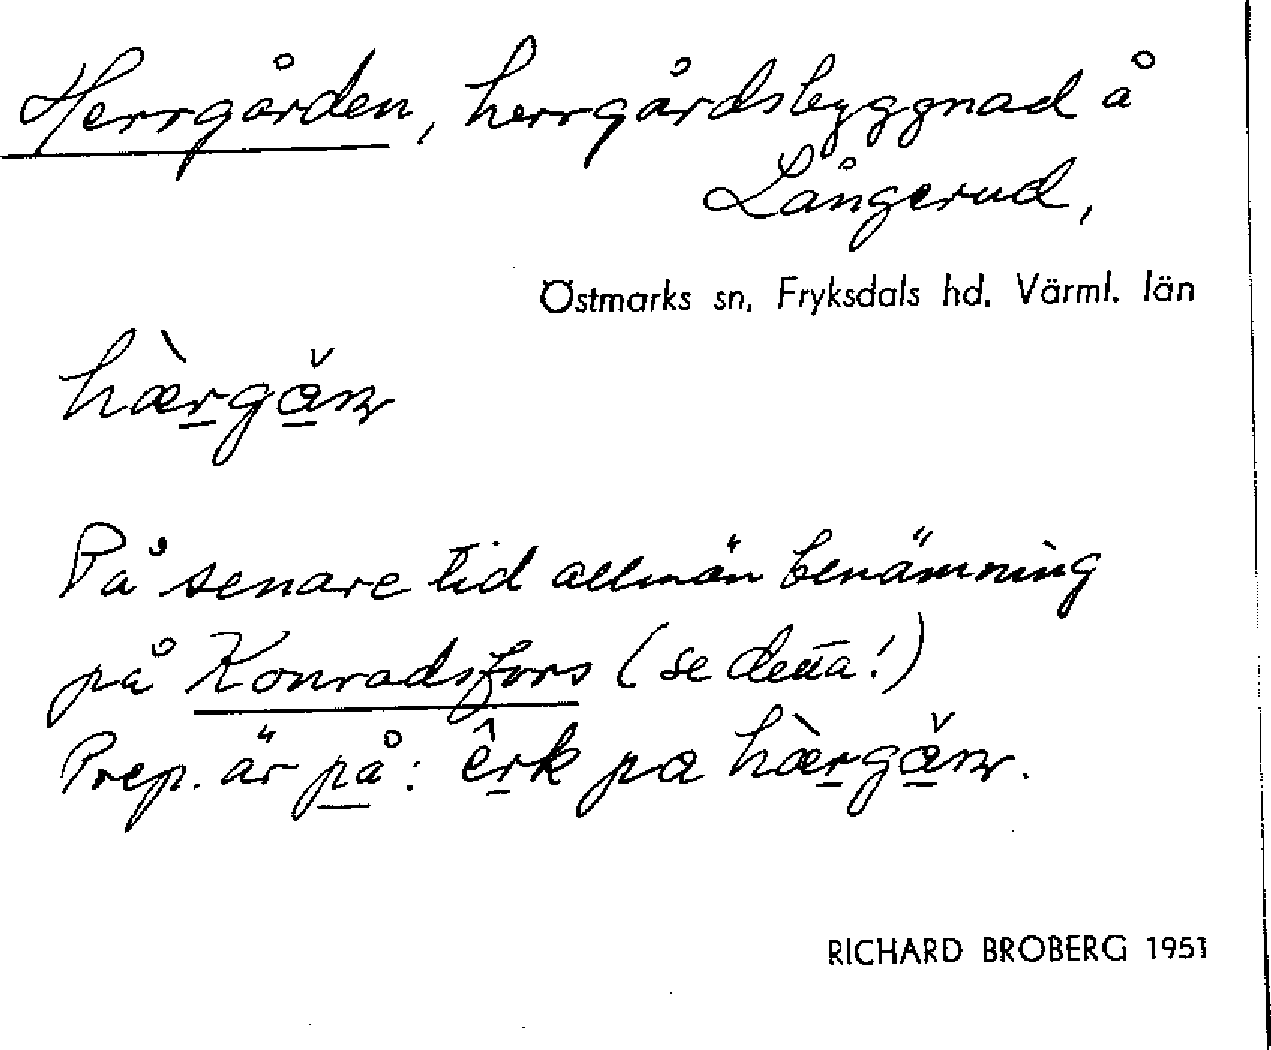 Herrgården, herrgårdsbyggnad å
Långerud,
Östmarks sn, Fryksdals hd. Värml. län
hæ̀rgǎɳ
På senare tid allmän benämning
på Konradsfors (se detta!)
Prep. är på: êrk pa hæ̀rgǎɳ.
RICHARD BROBERG 1951